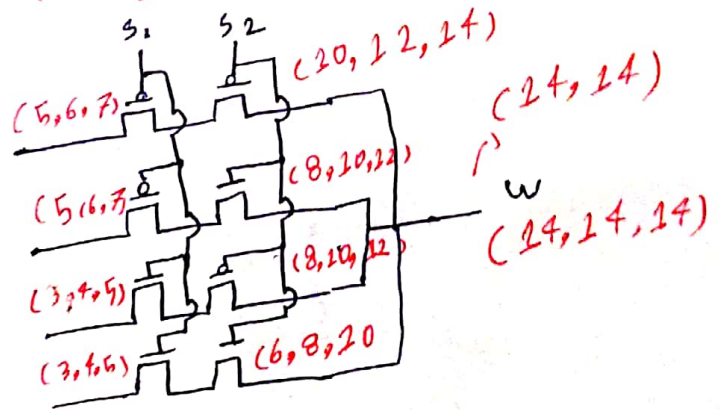 S1 S2
(10, 12, 14)
(5,6,7)
(14, 14)
(8,10,12)
(5,6,7)
W
(14, 14, 14)
(8,10,12)
(3,4,5)
(3,4,5)
(6,8,10